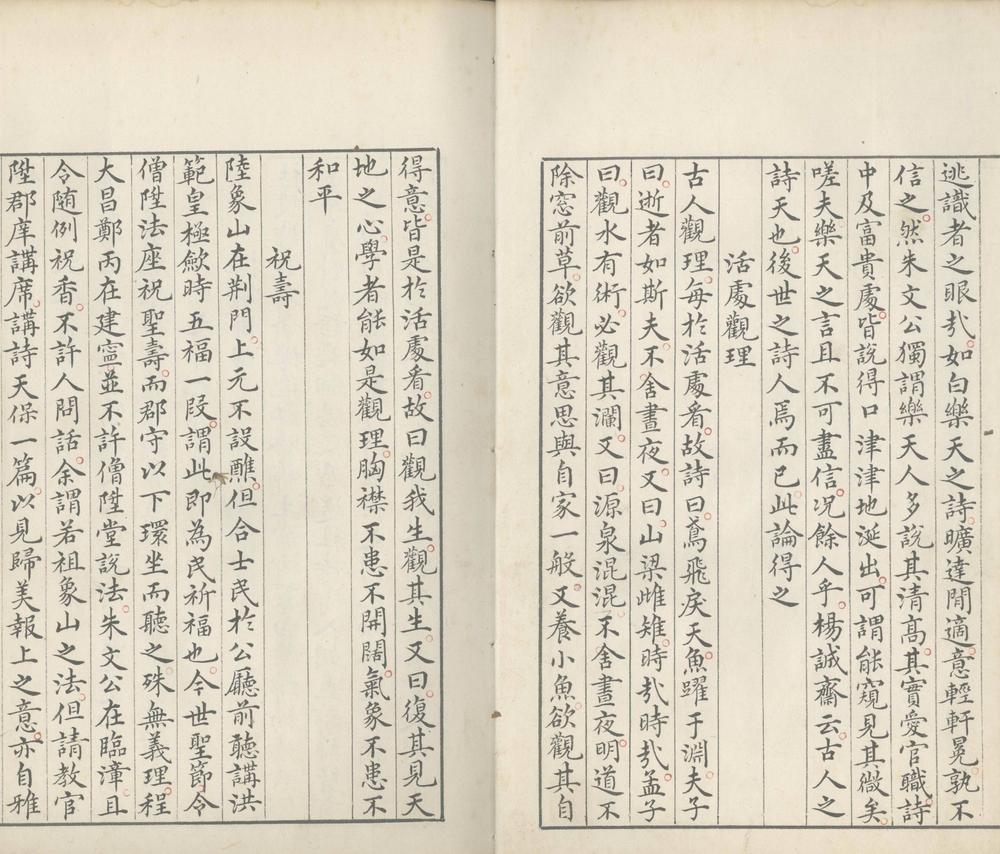 逃識者之眼㢤如白樂天之詩曠達閒適意輕軒冕孰不
信之然朱文公獨謂樂天人多說其清高其實愛官職詩
中及富貴處皆說得口津津地涎出可謂能窺見其微矣
嗟夫樂天之言且不可盡信况餘人乎楊誠齋云古人之
詩天也後世之詩人焉而已此論得之
活處觀理
古人觀理每於活處看故詩曰鳶飛戾天魚躍于淵夫子
曰逝者如斯夫不舍晝夜又曰山梁雌雉時㢤時㢤孟子
曰觀水有術必觀其瀾又曰源泉混混不舍晝夜明道不
除窓前草欲觀其意思與自家一般又養小魚欲觀其自
得意皆是於活處看故曰觀我生觀其生又曰復其見天
地之心學者能如是觀理胸襟不患不開闊氣象不患不
和平
祝壽
陸象山在荆門上元不設醮但合士民於公廳前聽講洪
範皇極歛時五福一段謂此即為民祈福也今世聖節令
僧陞法座祝聖壽而郡守以下環坐而聽之殊無義理程
大昌鄭丙在建寍並不許僧陞堂說法朱文公在臨漳且
令隨例祝香不許人問話余謂若祖象山之法但請教官
陞郡庠講席講詩天保一篇以見歸美報上之意亦自雅